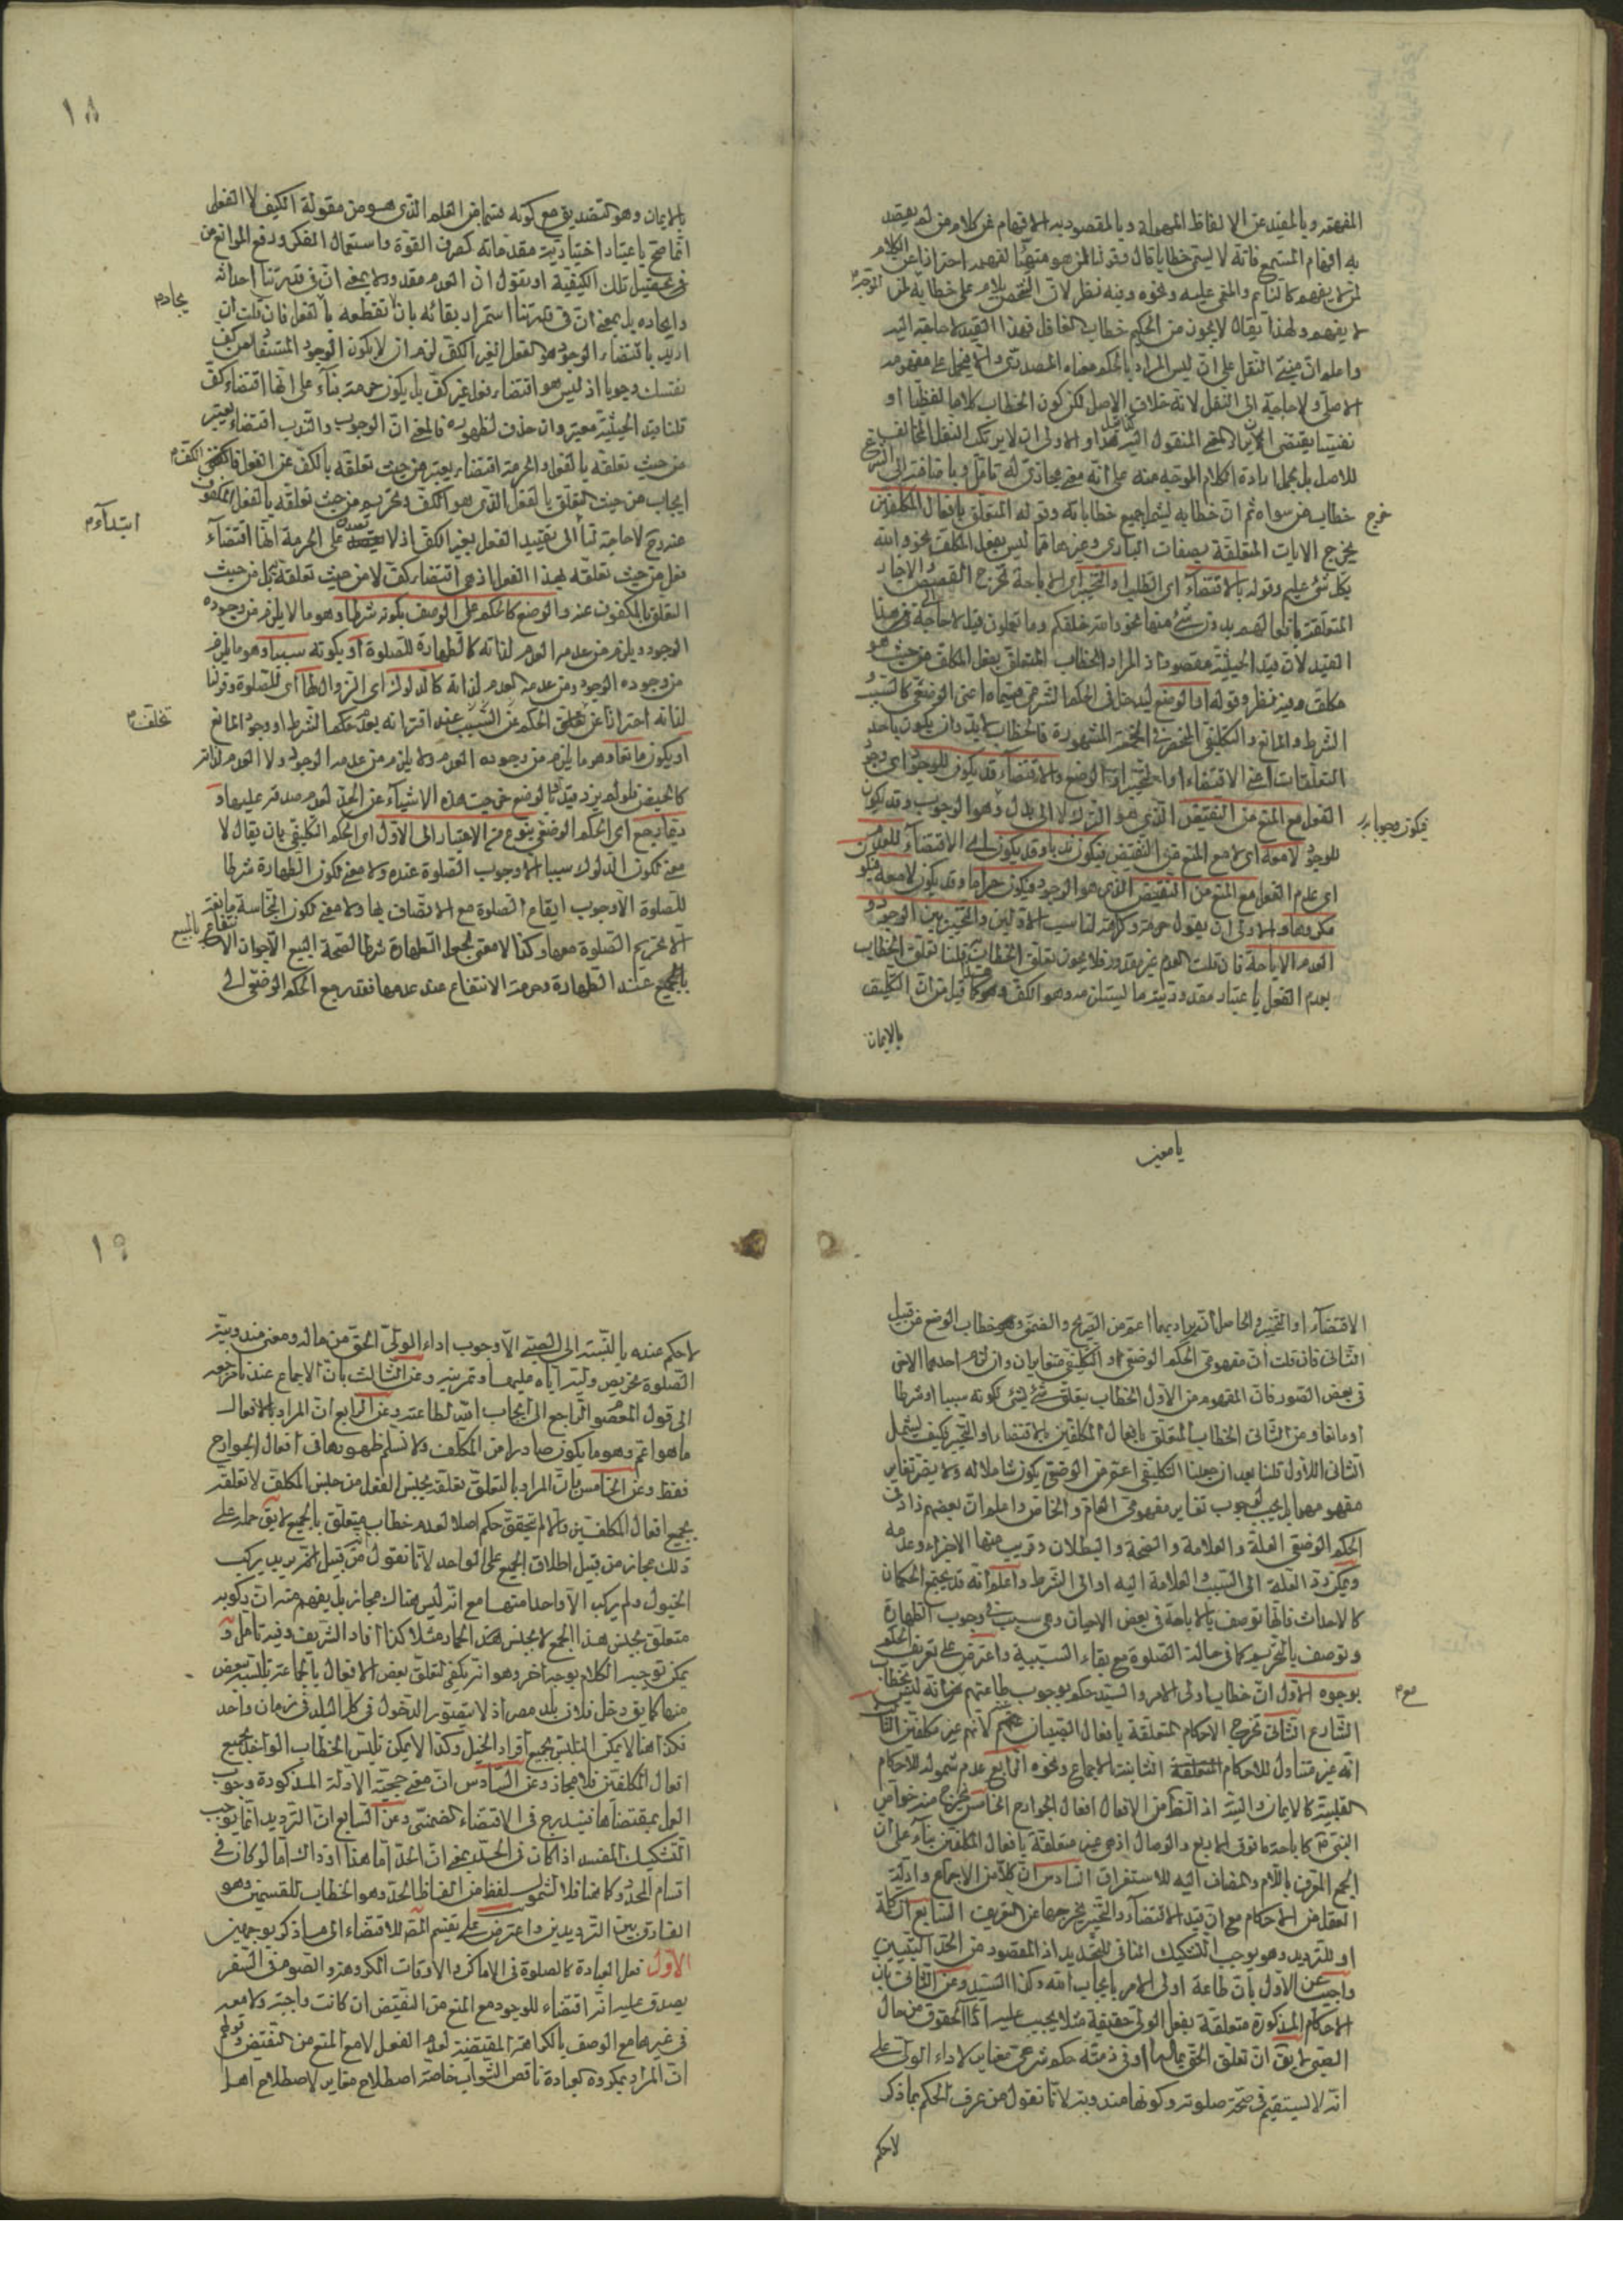 المفهم وبالمفيد عن الالفاظ المهملة وبالمقصود به الافهام عن كلام من لم يقصد
به افهام المستمع فانه لا يسمى خطابا قال وقولنا لمن هو متهيئا لفهمه احترازا عن الكلام
لمن لا يفهم كالنائم والمغمى عليه ونحوه وفيه نظر لان يلام على خطابه لمن
لا يفهم ولهذا يقال لا يجوز من الحكيم خطاب الغافل فهذا القيد لا حاجة اليه
واعلم ان مبنى النقل على ان ليس المراد بالحكم معناه المصدري والا يحمل على مفهومه
الاصلي ولا حاجة الى النقل لانه خلاف الاصل لكن كون الخطاب كلاما لفظيا او
نفسيا يقتضي المعنى المنقول اليه والاولى ان لا يرتكب النقل المخالف
للاصل بل يحمل ارادة الكلام الموجه منه على انه معنى مجازي له تأمل وباضافته الى الشرع
خرج خطاب من سواه ثم ان خطابه يشمل جميع خطاباته وقوله المتعلق بافعال المكلفين
يخرج الايات المتعلقة بصفات الباري وغيرها مما ليس بفعل المكلف نحو والله
بكل شيء عليم وقوله بالاقتضاء اي الطلب او التخيير اي الاباحة يخرج القصص والاخبار
المتعلقة بافعالهم بدون شيء منها نحو والله خلقكم وما تعملون قيل لا حاجة الى هذا
القيد لان قيد الحيثية مقصود اذ المراد الخطاب المتعلق بفعل المكلف من حيث هو
مكلف وفيه نظر وقوله او الوضع ليدخل في الحكم الشرعي قسيماه اعني الوضعي كالسبب و
الشرط والمانع والتكليفي المنحصر في الخمسة المشهورة فالخطاب لا بد وان يكون باحد
التعلقات اعني الاقتضاء او التخيير او الوضع والاقتضاء قد يكون للوجود اي وجود
الفعل مع المنع من النقيض الذي هو الترك لا الى بدل وهو الوجوب وقد يكون
فيكون وجوبا
للوجود لا معه اي لا مع المنع من النقيض فيكون ندبا وقد يكون اي الاقتضاء للعدم
اي عدم الفعل مع المنع من النقيض الذي هو الوجود فيكون حراما وقد يكون لا معه فيكون
مكروها والاولى ان يقول حرمة وكراهة لتناسب الاولين والتخيير بين الوجود و
العدم الاباحة فان قلت العدم غير مقدور فلا يجوز تعلق الخطاب به قلنا تعلق الخطاب
بعدم الفعل باعتبار مقدورية ما يستلزمه وهو الكف وهو كما قيل من ان التكليف
بالايمان
١٨
بالايمان وهو التصديق مع كونه قسما من العلم الذي هو من مقولة الكيف لا الفعل
انما صح باعتبار اختيارية مقدماته كصرف القوة واستعمال الفكر ورفع الموانع من
في تحصيل تلك الكيفية او نقول ان العدم مقدور لا بمعنى ان في قدرتنا احداثه
وايجاده بل بمعنى ان في قدرتنا استمرار بقائه بان لا تقطعه بالفعل فان قلت ان
ايجاده
اريد باقتضاء الوجود هو الفعل الغير الكف لزم ان لا يكون الوجوب المستفاد من كف
نفسك وجوبا اذ ليس هو اقتضاء فعل غير كف بل يكون حرمة بناء على انها اقتضاء كف
قلنا قيد الحيثية معتبر وان حذف لظهوره فالمعنى ان الوجوب والندب اقتضاء يعتبر
من حيث تعلقه بالفعل والحرمة اقتضاء يعتبر من حيث تعلقه بالكف عن الفعل
ايجاب من حيث التعلق بالفعل الذي هو الكف وتحريم من حيث تعلقه بالفعل المكفوف
ابتدآء
عنه وح لا حاجة لنا الى تقييد الفعل بغير الكف اذ لا على الحرمة انها اقتضاء
فعل من حيث تعلقه بهذا الفعل اذ هي اقتضاء كف لا من حيث تعلقه به بل من حيث
التعلق بالمكفوف عنه والوضع كالحكم على الوصف بكونه شرطا وهو ما لا يلزم من وجوده
الوجود ويلزم من عدمه العدم لذاته كالطهارة للصلوة او بكونه سببا وهو ما يلزم
من وجوده الوجود ومن عدمه العدم لذاته كالدلوك اي الزوال لها اي للصلوة وقولنا
لذاته احترازا عن تخلف الحكم عن السبب عند اقترانه بعدم حكم الشرط او وجود المانع
تخلف
او يكون مانعا وهو ما يلزم من وجوده العدم ولا يلزم من عدمه الوجود ولا العدم لذاته
كالحيض فلو لم يزد قيد الوضع خرجت هذه الاشياء عن الحد لعدم صدقه عليها و
يرجع اي الحكم الوضعي بنوع من الاعتبار الى الاول اي الحكم التكليفي بان يقال لا
معنى لكون الدلوك سببا الا وجوب الصلوة عنده ولا معنى لكون الطهارة شرطا
للصلوة الا وجوب ايقاع الصلوة مع الاتصاف بها ولا معنى لكون النجاسة مانعة
الا تحريم الصلوة معها وكذا لا معنى لجعل الطهارة شرطا لصحة البيع الا جواز الانتفاع
بالمبيع عند الطهارة وحرمة الانتفاع عند عدمها فقد رجع الحكم الوضعي الى
يا معين
الاقتضاء او التخيير والحاصل انه يراد بهما اعم من الصريح والضمني وخطاب الوضع من قبيل
الثاني فان قلت ان مفهومي الحكم الوضعي والتكليفي متغايران وان لزم احدهما الاخر
في بعض الصور فان المفهوم من الاول الخطاب بتعلق شيء بشيء لكونه سببا او شرطا
او مانعا ومن الثاني الخطاب المتعلق بافعال المكلفين بالاقتضاء او التخيير فكيف يشمل
الثاني الاول قلنا بعد ان جعلنا التكليفي اعم من الوضعي يكون شاملا له ولا يضر تغاير
مفهومهما بل يجب لوجوب تغاير مفهومي العام والخاص واعلم ان بعضهم زاد في
الحكم الوضعي العلة والعلامة والصحة والبطلان وقريب منها الاجزاء وعدمه
ويمكن رد العلة الى السبب والعلامة اليه او الى الشرط واعلم انه قد يجتمع الحكمان
كالاحداث فانها توصف بالاباحة في بعض الاحيان وهي سبب في وجوب الطهارة
وتوصف بالتحريم كما في حالة الصلوة مع بقاء السببية واعترض على تعريف الحكم
بوجوه الاول ان خطاب اولى الامر والسيد حكم بوجوب طاعتهم مع انه ليس بخطاب
الشارع الثاني تخرج الاحكام المتعلقة بافعال الصبيان لانهم غير مكلفين الثالث
انه غير متناول للاحكام المتعلقة الثابتة بالاجماع ونحوه الرابع عدم شموله للاحكام
القلبية كالايمان والنية اذ الظاهر من الافعال افعال الجوارح الخامس يخرج منه خواص
النبي كاباحة ما فوق الاربع والوصال اذ هي غير متعلقة بافعال المكلفين بناء على ان
الجمع المعرف باللام والمضاف اليه للاستغراق السادس ان كلا من الاجماع وادلة
العقل من الاحكام مع ان قيد الاقتضاء والتخيير يخرجها عن التعريف السابع ان كلمة
او للترديد وهو يوجب التشكيك المنافي للتحديد اذ المقصود من الحد التبيين
واجيب عن الاول بان طاعة اولى الامر بايجاب الله وكذا السيد وعن الثاني بان
الاحكام المذكورة متعلقة بفعل الولي حقيقة مثلا يجب عليه اداء الحقوق من مال
الصبي لا يق ان تعلق الحق بماله او في ذمته حكم شرعي مغاير لاداء الولي على
انه لا يستقيم في صحة صلوته وكونها مندوبة لانا نقول من عرف الحكم بما ذكر
لا حكم
١٩
لا حكم عنده بالنسبة الى الصبي الا وجوب اداء الولي الحق من ماله ومعنى مندوبية
الصلوة تحريص وليه اياه عليها وتمرينه وعن الثالث بان الاجماع عندنا مرجعه
الى قول المعصوم الراجع الى ايجاب الله لطاعته وعن الرابع ان المراد بالافعال
ما هو اعم وهو ما يكون صادرا من المكلف ولا نسلم ظهورها في افعال الجوارح
فقط وعن الخامس بان المراد بالتعلق تعلقه بجنس الفعل من جنس المكلف لا تعلقه
بجميع افعال المكلفين والا لم يتحقق حكم اصلا لعدم خطاب يتعلق بالجميع لا يق حمله على
ذلك مجاز من قبيل اطلاق الجمع على الواحد لانا نقول من قبيل زيد يركب
الخيول ولم يركب الا واحدا منها مع انه ليس هناك مجاز بل يفهم منه ان ركوبه
متعلق بجنس هذا الجمع لا بجنس الحمار مثلا كذا افاد الشريف وفيه تأمل و
يمكن توجيه الكلام بوجه اخر وهو انه يكفي لتعلق بعض الافعال بالجماعة بعض
منها كما يق دخل فلان بلد مصر اذ لا يتصور الدخول في كل البلد في زمان واحد
فكذا هنا لا يمكن التلبس بجميع افراد الخيل وكذا لا يمكن تلبس الخطاب الواحد بجميع
افعال المكلفين فلا مجاز وعن السادس ان معنى حجية الادلة المذكورة وجوب
العمل بمقتضاها فيندرج في الاقتضاء الضمني وعن السابع ان الترديد انما يوجب
التشكيك المفسد اذا كان في الحد بمعنى ان الحد اما هذا او ذاك اما لو كان في
اقسام المحدود كما هنا فلا لشمول لفظ من الفاظ الحد وهو الخطاب للقسمين وهو
الفارق بين الترديدين واعترض على تقسيم المص للاقتضاء الى ما ذكر بوجهين
الاول فعل العبادة كالصلوة في الاماكن والاوقات المكروهة والصوم في السفر
يصدق عليه انه اقتضاء للوجود مع المنع من النقيض ان كانت واجبة ولا معه
في غيرها مع الوصف بالكراهة المقتضية لعدم الفعل لا مع المنع من النقيض وقولهم
ان المراد بمكروه العبادة ناقص الثواب خاصة اصطلاح مغاير لاصطلاح اهل